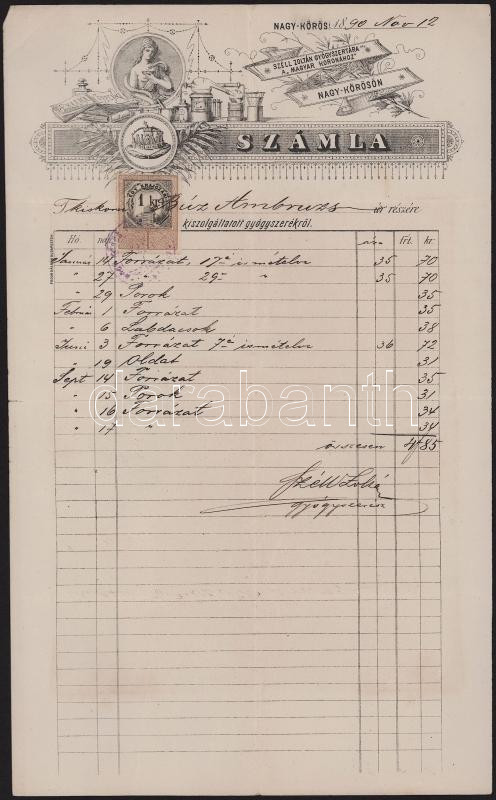 NAGY-KŐRÖS, 1890 Nov 12
SZÉLL ZOLTÁN GYÓGYSZERTÁRA
A „MAGYAR KORONÁHOZ"
NAGY-KŐRÖSÖN
SZÁMLA
1 kr.
Ambruzs úr részére
kiszolgáltatott gyógyszerékről.
Hó nap ára frt. kr.
Januári 14 Forrázat, 17é ismételve 35 70
" 27 " " 29- " 35 70
" 29 Porok 35
Február 1 Forrázat 35
" 6 Labdacsok 38
Juni 3 Forrázat 7é ismételve 36 72
" 19 Oldat 31
Sept 14 Forrázat 35
" 15 Porok 31
" 16 Forrázat 34
" 17 " 34
összesen 4 85
Széll Zoltán
gyógyszerész
darabanth